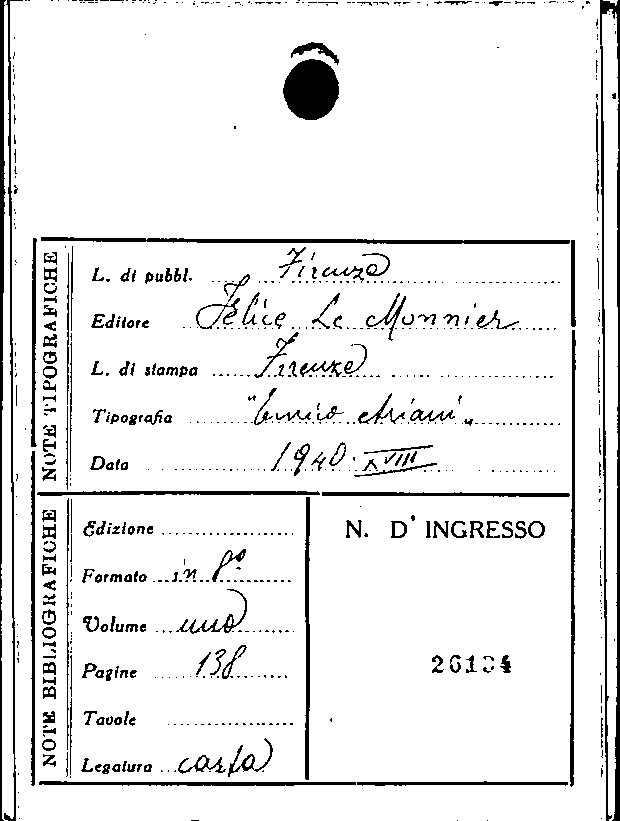 NOTE TIPOGRAFICHE
L. di pubbl. Firenze
Editore Felice Le Monnier
L. di stampa Firenze
Tipografia "Enrico Ariani"
Data 1940·XVIII
NOTE BIBLIOGRAFICHE
Edizione
Formato in 8°
Volume uno
Pagine 138
Tavole
Legatura carta
N. D'INGRESSO